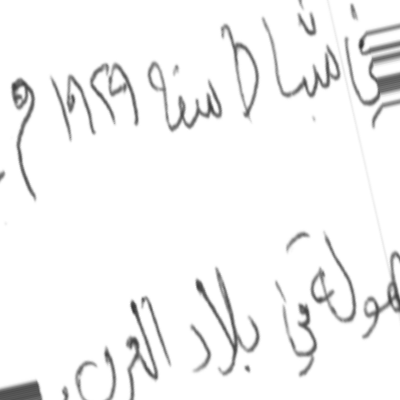 في شباط سنة ١٩٢٩ م
هولة في بلاد العرب